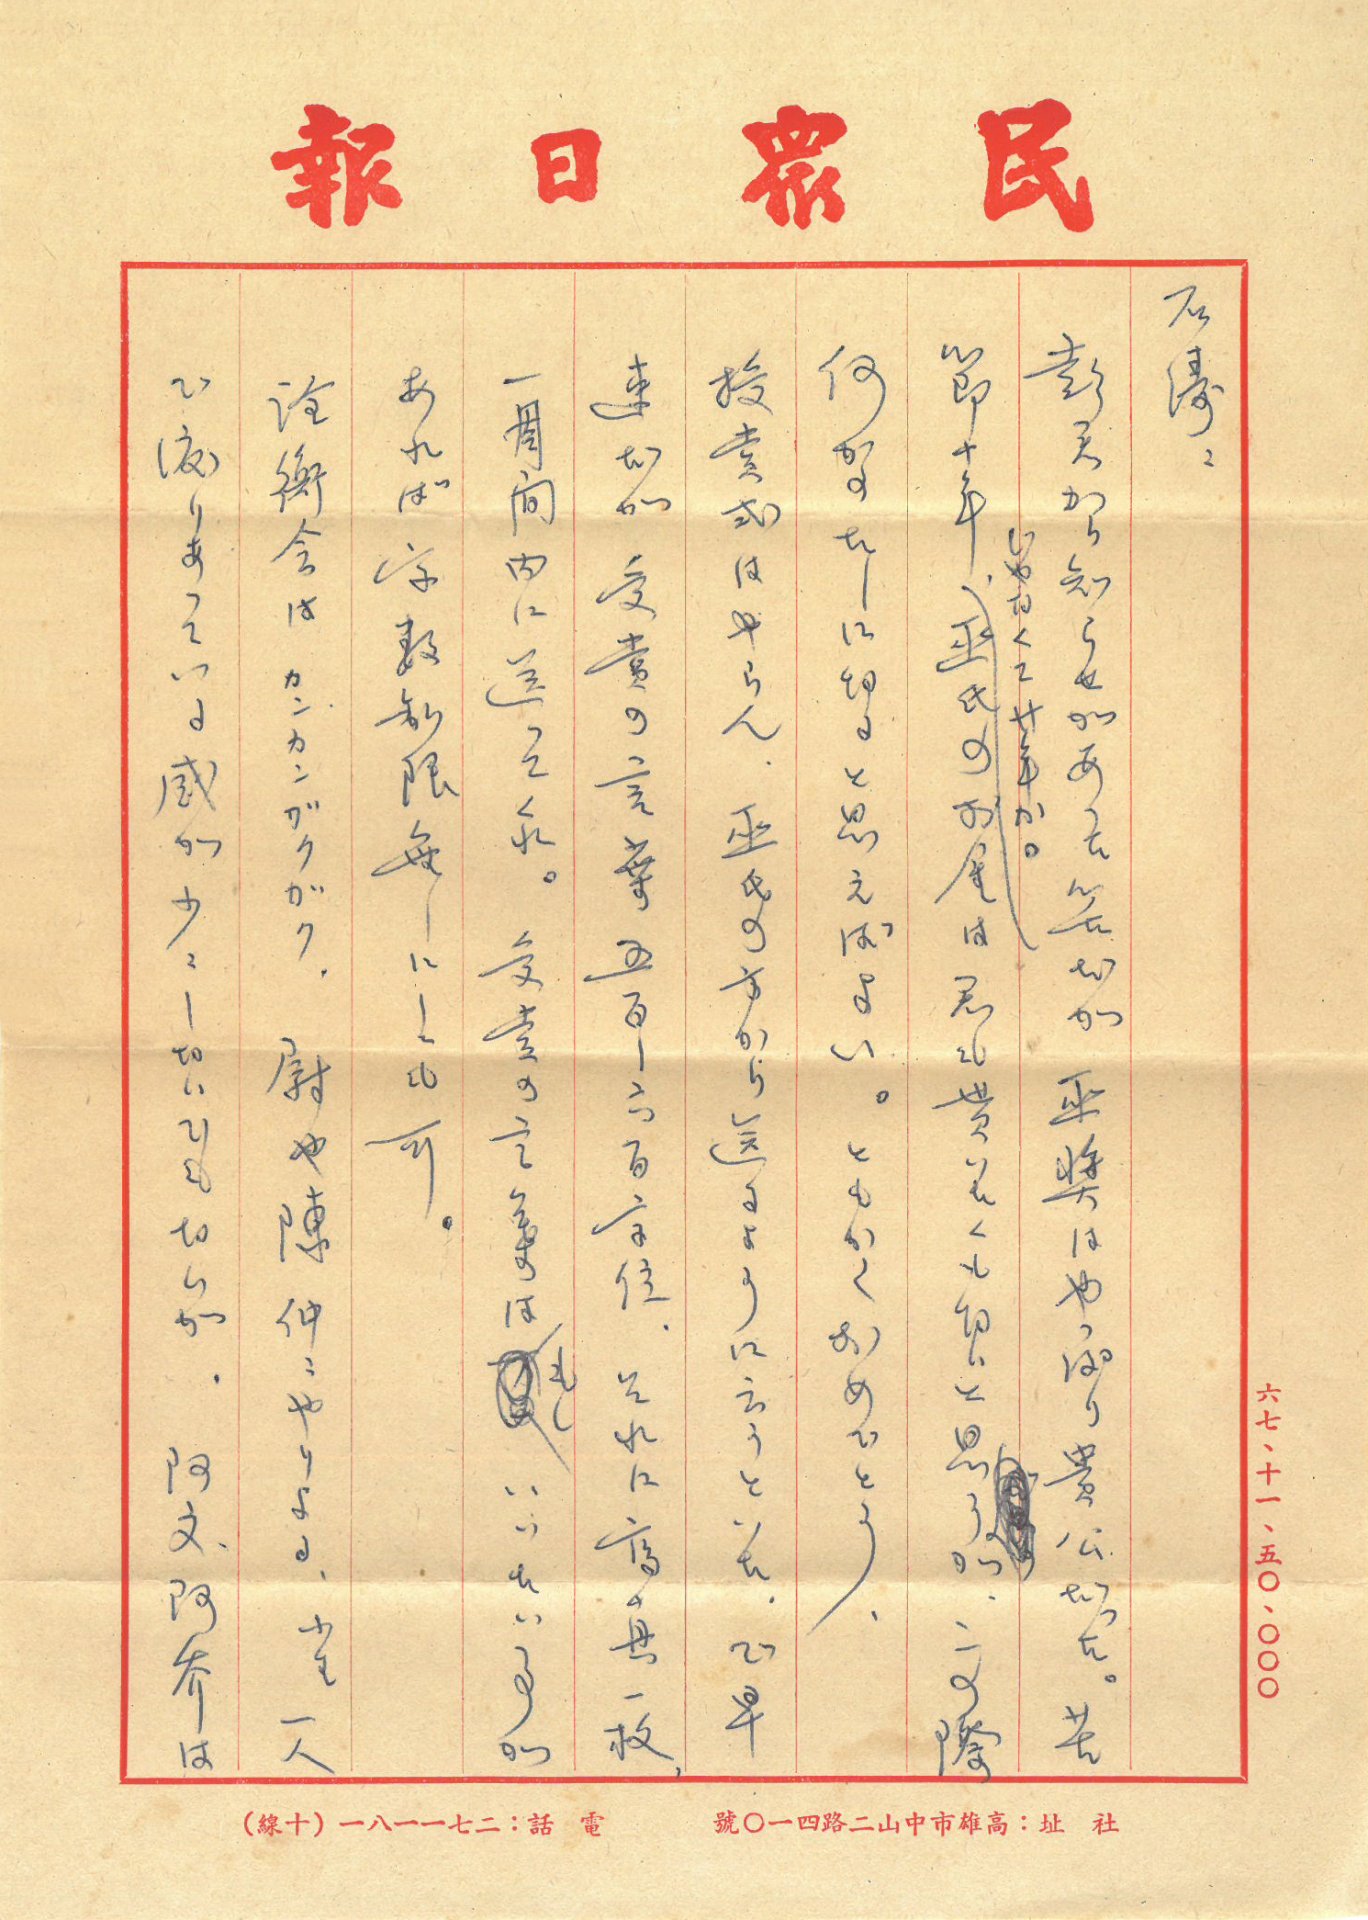 民眾日報
石濤：
彭君から知らせがあった筈だが 巫奨はやっぱり貴公だった。苦
節十年、巫氏のお金は君も貰いたくもないと思うが、この際
じゃなくて廿年か。
何かのたしになると思えばよい。ともかくおめでとう。
授賞式はやらん、巫氏の方から送るように云うといた。で早
速だが 受賞の言葉 五百ー六百字位、それに写真一枚、
一週間内に送って呉れ。受賞の言葉は もし いいたい事が
あれば字数制限無しにしても可。
詮衡会は カンカンガクガク、尉や陳 仲々やりよる、 一人
で渡りあっている感が少々しないでもないが。 阿文、阿奔は
六七、十一、五〇、〇〇〇
社 址：高雄市中山二路四一〇號
電 話：二七一一八一（十線）